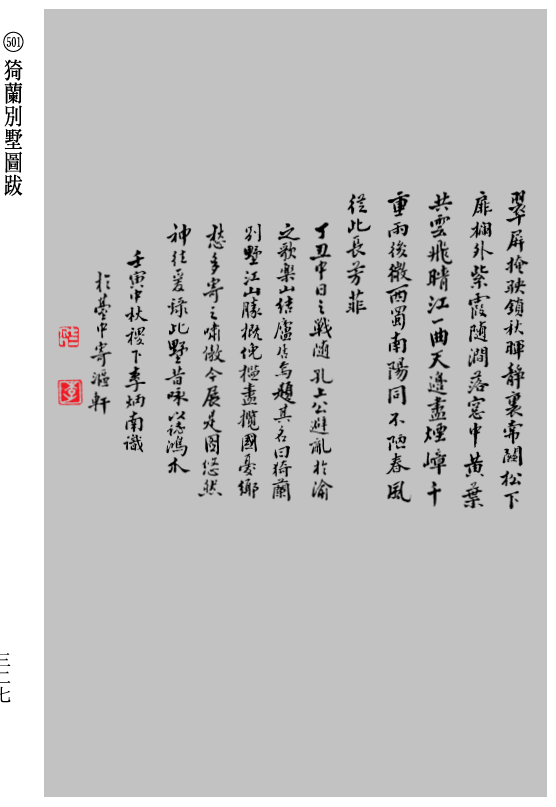 翠屏掩映鎖秋暉靜裏常關松下
扉樹外紫霞隨澗落窓中黄葉
共雲飛晴江一曲天邊盡煙嶂千
重雨後微西蜀南陽同不陋春風
從此長芳菲
丁丑中日之戰隨孔上公避亂於渝
之歌樂山結廬居焉題其名曰猗蘭
別墅江山勝概恍檻盡攬國憂鄉
愁多寄之嘯傲今展是圖悠然
神往爰錄此墅昔咏以誌鴻爪
壬寅中秋稷下李炳南識
於臺中寄漚軒
501 猗蘭別墅圖跋
三二七